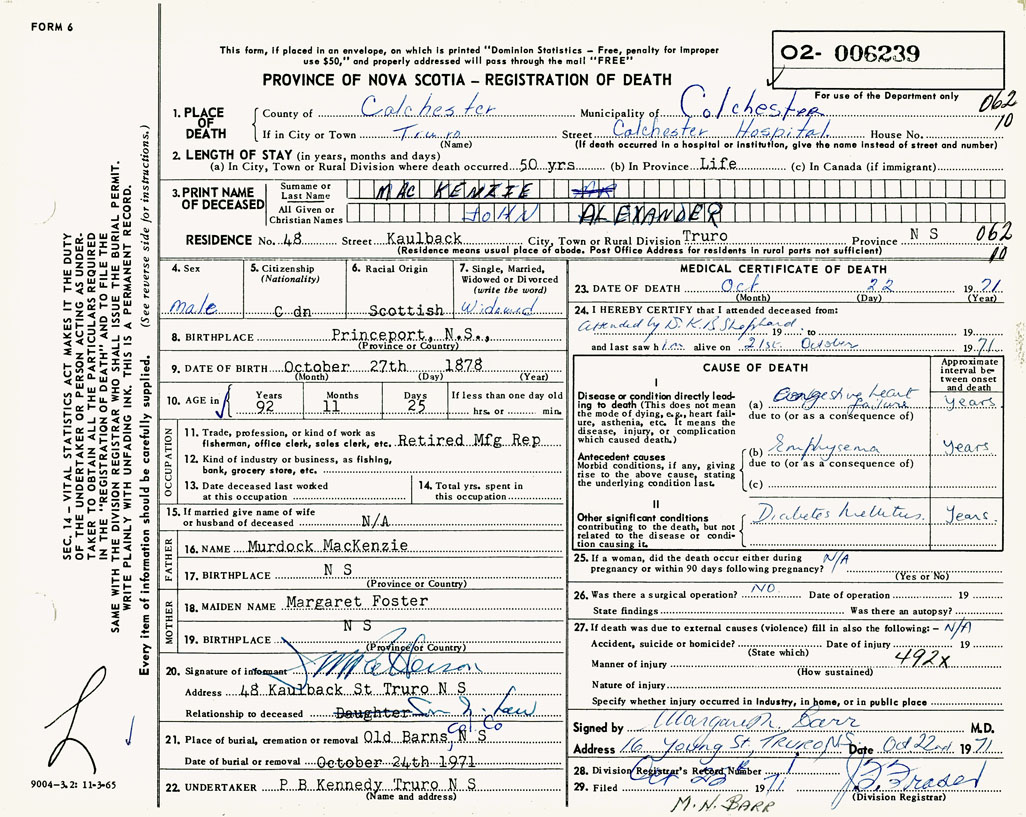 FORM 6
This form, if placed in an envelope, on which is printed "Dominion Statistics – Free, penalty for improper
use $50," and properly addressed will pass through the mail "FREE"
O2- 006239
PROVINCE OF NOVA SCOTIA – REGISTRATION OF DEATH
For use of the Department only
062
10
1. PLACE OF DEATH
County of Colchester Municipality of Colchester
If in City or Town Truro Street Colchester Hospital House No.
(Name) (If death occurred in a hospital or institution, give the name instead of street and number)
2. LENGTH OF STAY (in years, months and days)
(a) In City, Town or Rural Division where death occurred 50 yrs (b) In Province Life (c) In Canada (if immigrant)
3. PRINT NAME OF DECEASED
Surname or Last Name MAC KENZIE
All Given or Christian Names JOHN ALEXANDER
RESIDENCE No. 48 Street Kaulback City, Town or Rural Division Truro Province N S
062
10
(Residence means usual place of abode. Post Office Address for residents in rural parts not sufficient)
4. Sex
male
5. Citizenship
(Nationality)
C dn
6. Racial Origin
Scottish
7. Single, Married,
Widowed or Divorced
(write the word)
Widowed
8. BIRTHPLACE Princeport, N.S.,
(Province or Country)
9. DATE OF BIRTH October 27th 1878
(Month) (Day) (Year)
10. AGE in
Years Months Days If less than one day old
92 11 25 hrs. or min.
OCCUPATION
11. Trade, profession, or kind of work as
fisherman, office clerk, sales clerk, etc. Retired Mfg Rep
12. Kind of industry or business, as fishing,
bank, grocery store, etc.
13. Date deceased last worked
at this occupation
14. Total yrs. spent in
this occupation
15. If married give name of wife
or husband of deceased N/A
FATHER
16. NAME Murdock MacKenzie
17. BIRTHPLACE N S
(Province or Country)
MOTHER
18. MAIDEN NAME Margaret Foster
19. BIRTHPLACE N S
(Province or Country)
20. Signature of informant
Address 48 Kaulback St Truro N S
Relationship to deceased Daughter Son In Law
Col. Co
21. Place of burial, cremation or removal Old Barns, N S
Date of burial or removal October 24th 1971
22. UNDERTAKER P B Kennedy Truro N S
(Name and address)
MEDICAL CERTIFICATE OF DEATH
23. DATE OF DEATH Oct 22 1971
(Month) (Day) (Year)
24. I HEREBY CERTIFY that I attended deceased from
attended by Dr. K B Shephard 19 to 19
and last saw him alive on 21st October 1971
CAUSE OF DEATH
Approximate interval between onset and death
I
Disease or condition directly leading to death (This does not mean
the mode of dying, e.g., heart failure, asthenia, etc. It means the
disease, injury, or complication
which caused death.)
(a) Congestive heart failure years
due to (or as a consequence of)
Antecedent causes
Morbid conditions, if any, giving
rise to the above cause, stating
the underlying condition last.
(b) Emphysema years
due to (or as a consequence of)
(c)
II
Other significant conditions
contributing to the death, but not
related to the disease or condition causing it.
Diabetes Mellitus. Years.
25. If a woman, did the death occur either during
pregnancy or within 90 days following pregnancy? N/A
(Yes or No)
26. Was there a surgical operation? NO. Date of operation 19
State findings Was there an autopsy?
27. If death was due to external causes (violence) fill in also the following: – N/A
Accident, suicide or homicide? Date of injury 19
(State which) 492X
Manner of injury
(How sustained)
Nature of injury
Specify whether injury occurred in industry, in home, or in public place
Signed by Margaret N. Barr M.D.
Address 16 Young St, TRURO NS Date Oct 22nd 1971
28. Division Registrar's Record Number
29. Filed Oct 1971
(Division Registrar)
M.N. BARR
SEC. 14 – VITAL STATISTICS ACT MAKES IT THE DUTY
OF THE UNDERTAKER OR PERSON ACTING AS UNDERTAKER TO OBTAIN ALL THE PARTICULARS REQUIRED
IN THE "REGISTRATION OF DEATH" AND TO FILE THE
SAME WITH THE DIVISION REGISTRAR WHO SHALL ISSUE THE BURIAL PERMIT.
WRITE PLAINLY WITH UNFADING INK. THIS IS A PERMANENT RECORD.
Every item of information should be carefully supplied. (See reverse side for instructions.)
9004-3.2: 11-3-65